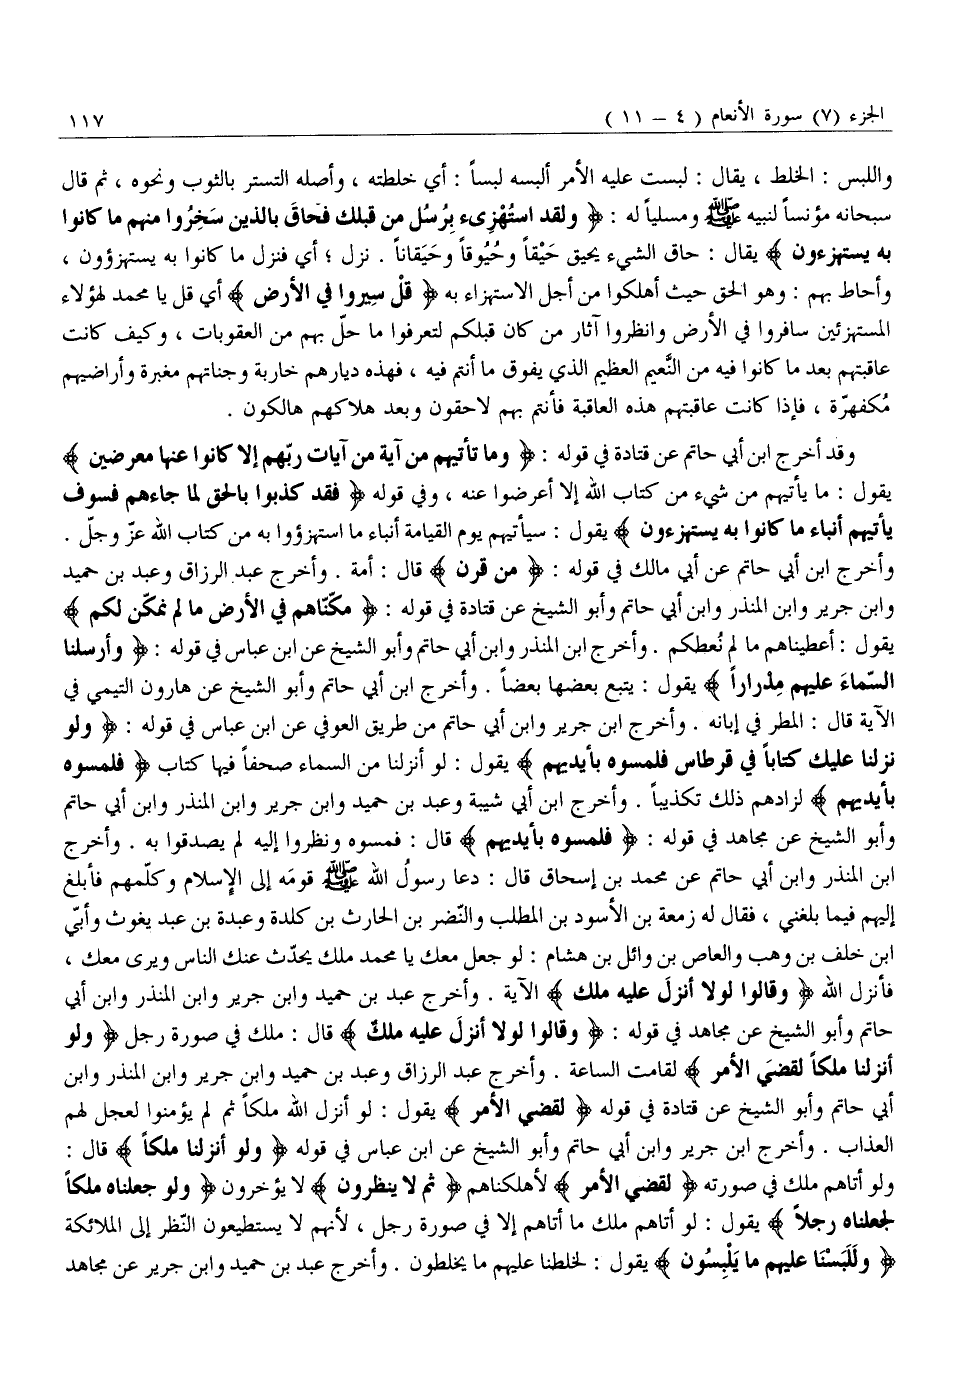 الجزء (٧) سورة الأنعام ( ٤ – ١١ ) ١١٧
واللبس : الخلط ، يقال : لبست عليه الأمر ألبسه لبساً : أي خلطته ، وأصله التستر بالثوب ونحوه ، ثم قال
سبحانه مؤنساً لنبيه ﷺ ومسلياً له : ﴿ ولقد استُهْزِىء بِرُسُل من قبلك فَحَاقَ بالذين سَخِرُوا منهم ما كانوا
به يستهزءون ﴾ يقال : حاق الشيء يحيق حَيْقاً وحُيُوقاً وحَيَقاناً . نزل ؛ أي فنزل ما كانوا به يستهزؤون ،
وأحاط بهم : وهو الحق حيث أهلكوا من أجل الاستهزاء به ﴿ قلْ سِيروا في الأرض ﴾ أي قل يا محمد لهؤلاء
المستهزئين سافروا في الأرض وانظروا آثار من كان قبلكم لتعرفوا ما حلّ بهم من العقوبات ، وكيف كانت
عاقبتهم بعد ما كانوا فيه من النَّعيم العظيم الذي يفوق ما أنتم فيه ، فهذه ديارهم خاربة وجناتهم مغبرة وأراضيهم
مُكفهرّة ، فإذا كانت عاقبتهم هذه العاقبة فأنتم بهم لاحقون وبعد هلاكهم هالكون .
وقد أخرج ابن أبي حاتم عن قتادة في قوله : ﴿ وما تأتيهم من آية من آيات ربّهم إلا كانوا عنها معرضين ﴾
يقول : ما يأتيهم من شيء من كتاب الله إلا أعرضوا عنه ، وفي قوله ﴿ فقد كذبوا بالحق لما جاءهم فسوف
يأتيهم أنباء ما كانوا به يستهزءون ﴾ يقول : سيأتيهم يوم القيامة أنباء ما استهزؤوا به من كتاب الله عزّ وجلّ .
وأخرج ابن أبي حاتم عن أبي مالك في قوله : ﴿ من قرن ﴾ قال : أمة . وأخرج عبد الرزاق وعبد بن حميد
وابن جرير وابن المنذر وابن أبي حاتم وأبو الشيخ عن قتادة في قوله : ﴿ مكنّاهم في الأرض ما لم نمكّن لكم ﴾
يقول : أعطيناهم ما لم نُعطكم . وأخرج ابن المنذر وابن أبي حاتم وأبو الشيخ عن ابن عباس في قوله : ﴿ وأرسلنا
السّماءَ عليهم مِدراراً ﴾ يقول : يتبع بعضها بعضاً . وأخرج ابن أبي حاتم وأبو الشيخ عن هارون التيمي في
الآية قال : المطر في إبانه . وأخرج ابن جرير وابن أبي حاتم من طريق العوفي عن ابن عباس في قوله : ﴿ ولو
نزلنا عليك كتاباً في قرطاس فلمسوه بأيديهم ﴾ يقول : لو أنزلنا من السماء صحفاً فيها كتاب ﴿ فلمسوه
بأيديهم ﴾ لزادهم ذلك تكذيباً . وأخرج ابن أبي شيبة وعبد بن حميد وابن جرير وابن المنذر وابن أبي حاتم
وأبو الشيخ عن مجاهد في قوله : ﴿ فلمسوه بأيديهم ﴾ قال : فمسوه ونظروا إليه لم يصدقوا به . وأخرج
ابن المنذر وابن أبي حاتم عن محمد بن إسحاق قال : دعا رسولُ الله ﷺ قومَه إلى الإسلام وكلّمهم فأبلغ
إليهم فيما بلغني ، فقال له زمعة بن الأسود بن المطلب والنّضر بن الحارث بن كلدة وعبدة بن عبد يغوث وأبيّ
ابن خلف بن وهب والعاص بن وائل بن هشام : لو جعل معك يا محمد ملك يحدّث عنك الناس ويرى معك ،
فأنزل الله ﴿ وقالوا لولا أنزلَ عليه ملك ﴾ الآية . وأخرج عبد بن حميد وابن جرير وابن المنذر وابن أبي
حاتم وأبو الشيخ عن مجاهد في قوله : ﴿ وقالوا لولا أنزلَ عليه ملكٌ ﴾ قال : ملك في صورة رجل ﴿ ولو
أنزلنا ملكاً لقضيَ الأمر ﴾ لقامت الساعة . وأخرج عبد الرزاق وعبد بن حميد وابن جرير وابن المنذر وابن
أبي حاتم وأبو الشيخ عن قتادة في قوله ﴿ لقضي الأمر ﴾ يقول : لو أنزل الله ملكاً ثم لم يؤمنوا لعجل لهم
العذاب . وأخرج ابن جرير وابن أبي حاتم وأبو الشيخ عن ابن عباس في قوله ﴿ ولو أنزلنا ملكاً ﴾ قال :
ولو أتاهم ملك في صورته ﴿ لقضي الأمر ﴾ لأهلكناهم ﴿ ثم لا ينظرون ﴾ لا يؤخرون ﴿ ولو جعلناه ملكاً
لجعلناه رجلاً ﴾ يقول : لو أتاهم ملك ما أتاهم إلا في صورة رجل ، لأنهم لا يستطيعون النّظر إلى الملائكة
﴿ وَلَلَبَسْنَا عليهم ما يَلْبِسُون ﴾ يقول : لخلطنا عليهم ما يخلطون . وأخرج عبد بن حميد وابن جرير عن مجاهد